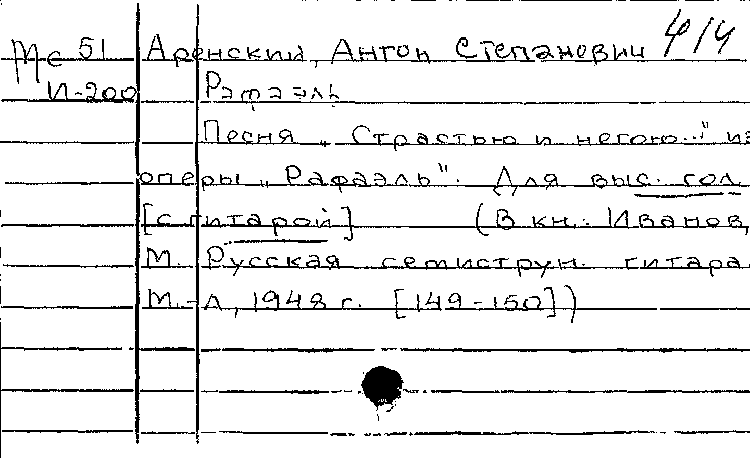 Мс 51 Аренский, Антон Степанович 414
И-200 Рафаэль
Песня „Страстью и негою..." из
оперы „Рафаэль". Для выс. гол.
[с гитарой] (В кн.: Иванов,
М. Русская семиструн. гитара.
М.-Л., 1948 г. [149-150])